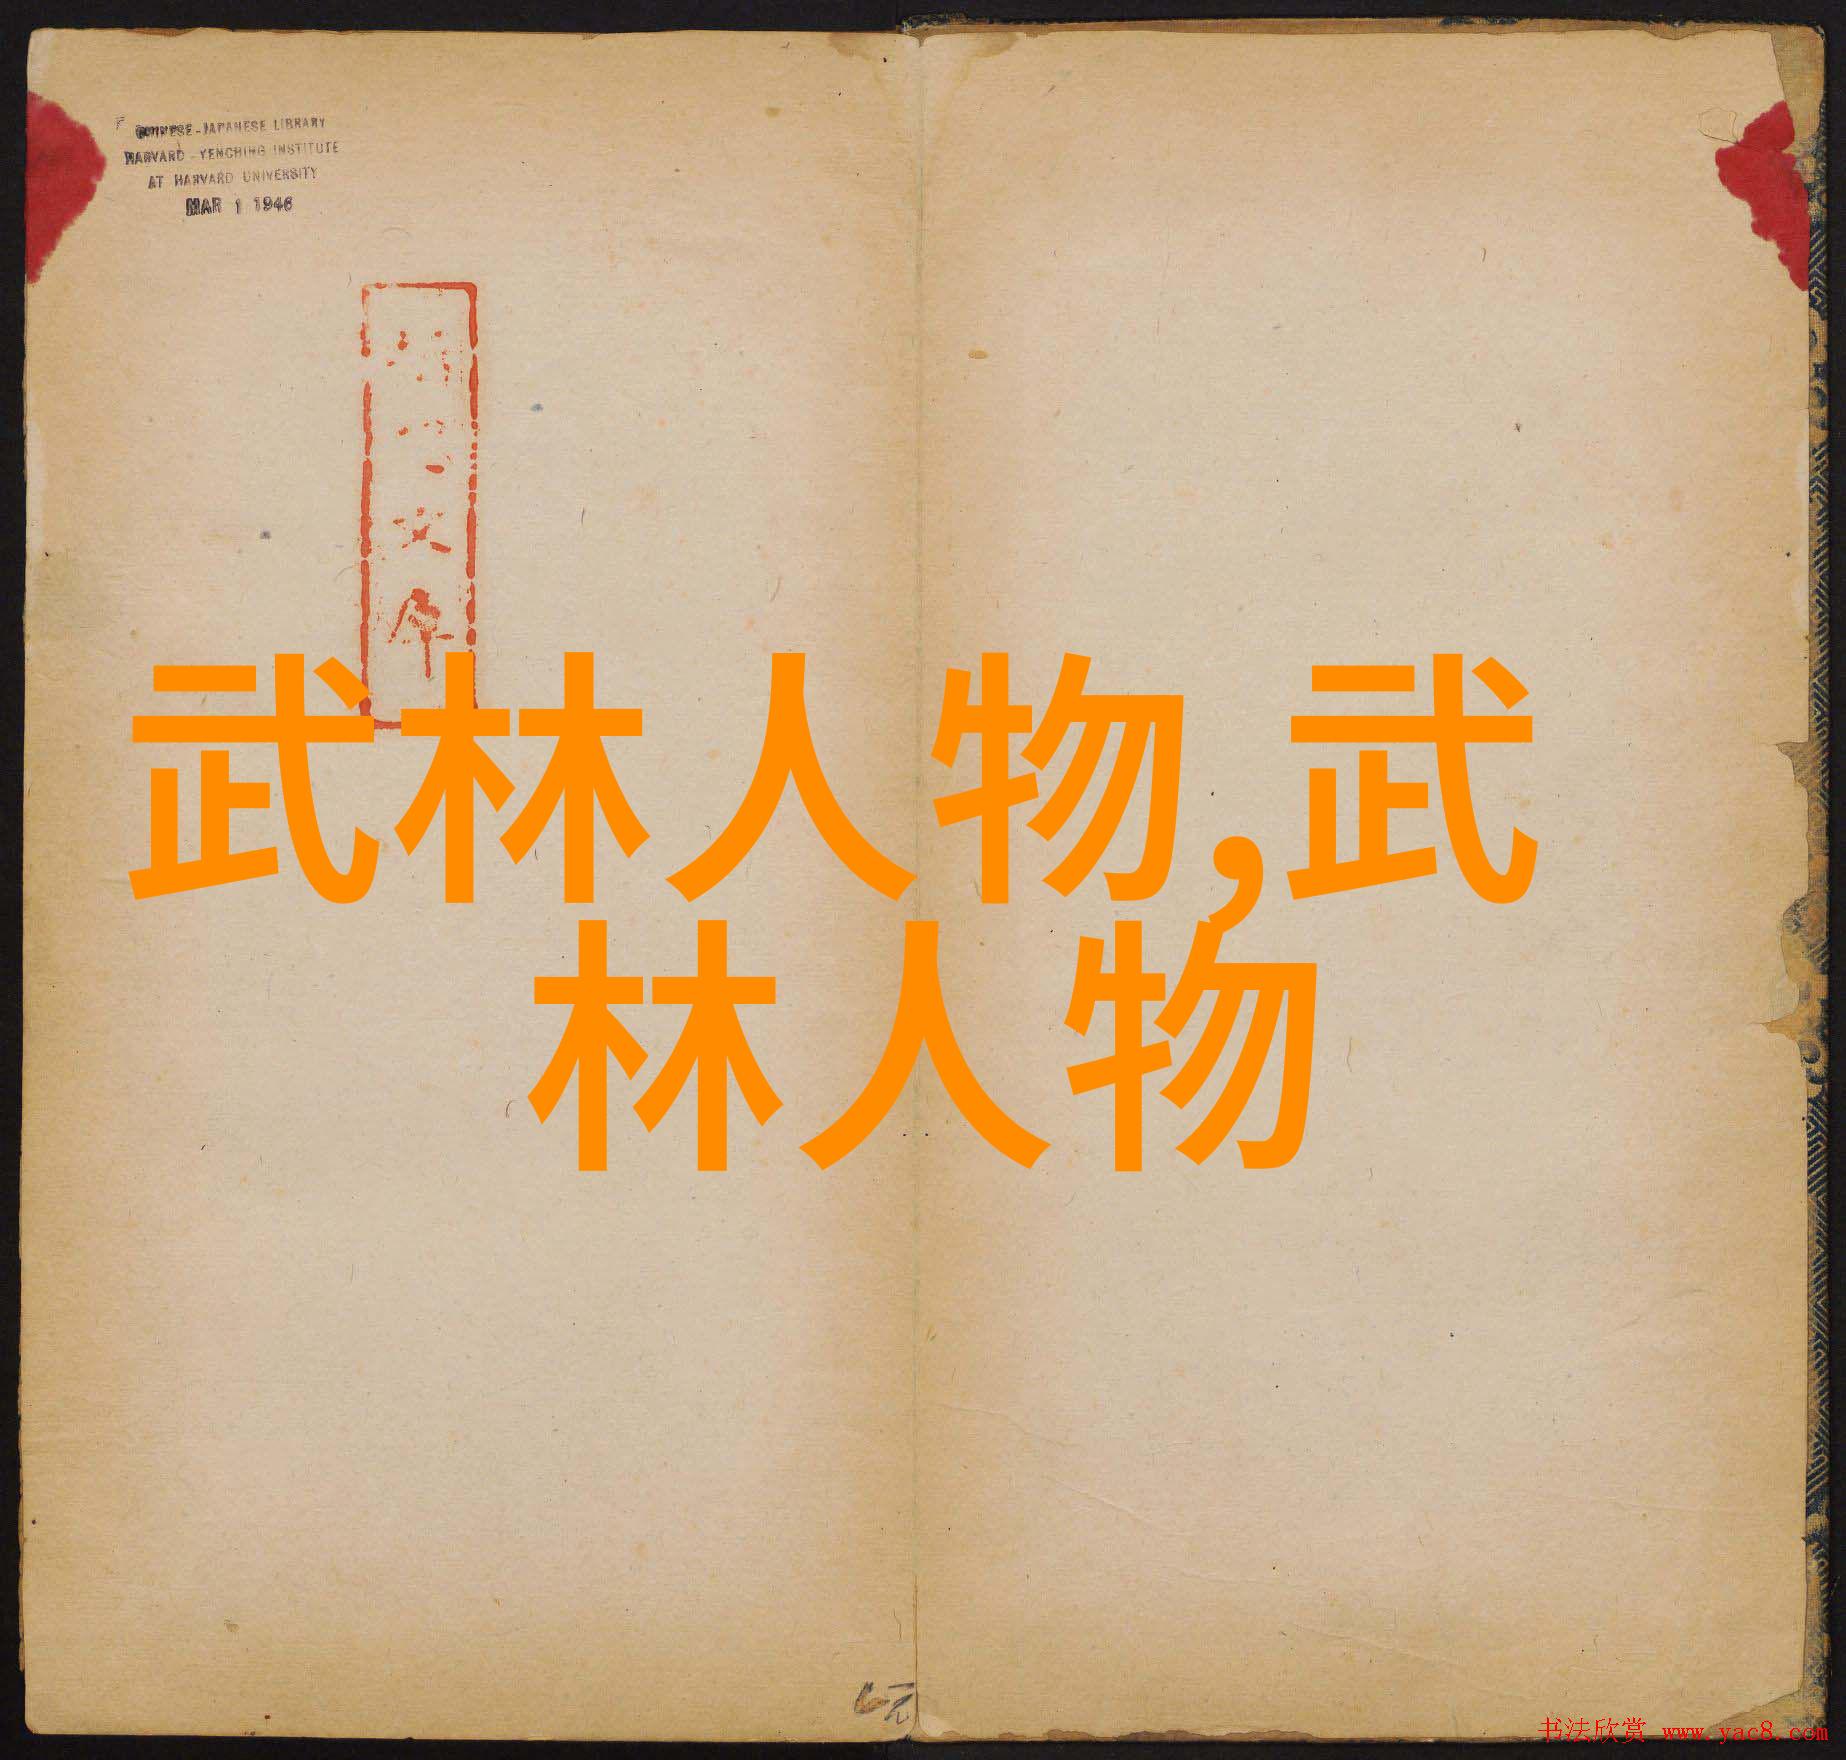 CHINESE-JAPANESE LIBRARY
HARVARD-YENCHING INSTITUTE
AT HARVARD UNIVERSITY
MAR 1 1946
武林人物,武
林人物
元
书法欣赏 www.yac8.com